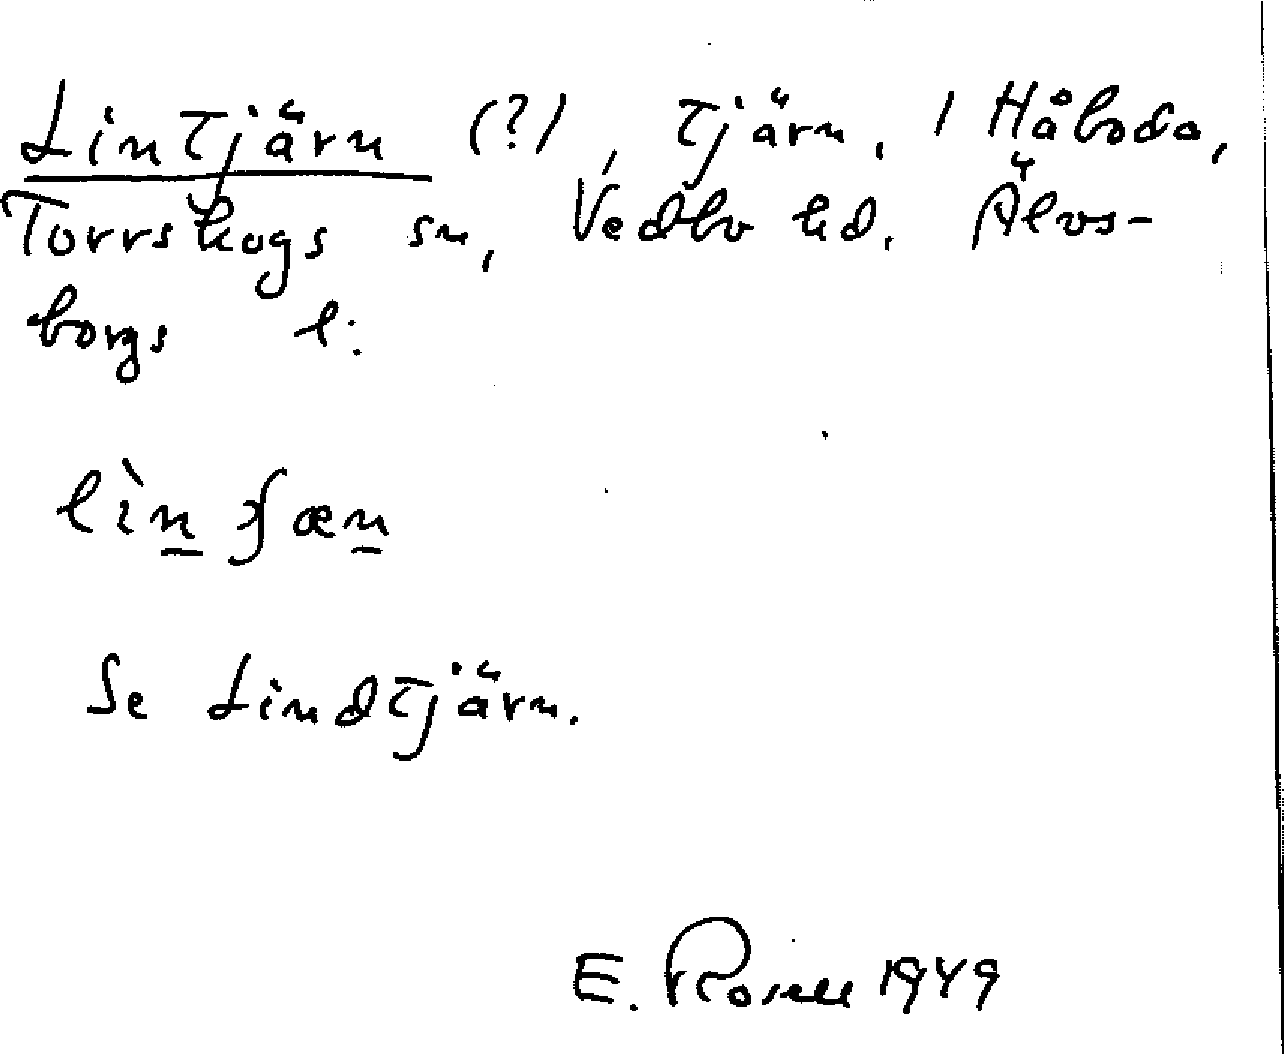 Lintjärn (?), tjärn, i Håboda,
Torrskogs sn, Vedbo hd. Älvs-
borgs l:
lìn ʄæn
Se Lindtjärn.
E. Rosell 1949